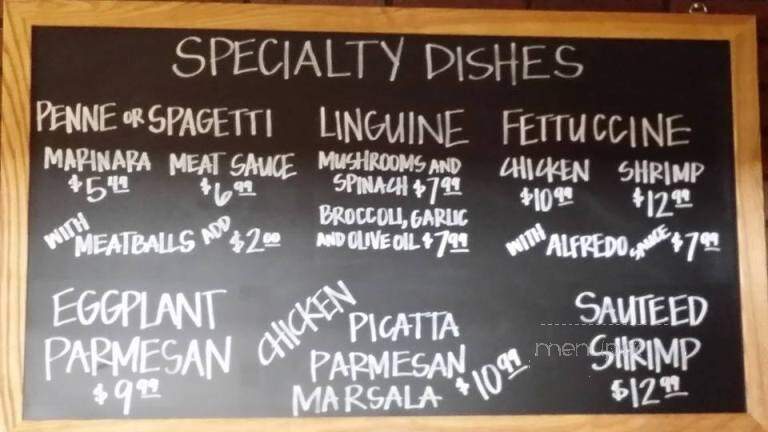 SPECIALTY DISHES
PENNE OR SPAGETTI
MARINARA MEAT SAUCE
$5.49 $6.99
WITH MEATBALLS ADD $2.00
LINGUINE
MUSHROOMS AND
SPINACH $7.99
BROCCOLI, GARLIC
AND OLIVE OIL $7.99
FETTUCCINE
CHICKEN SHRIMP
$10.99 $12.99
WITH ALFREDO SAUCE $7.99
EGGPLANT
PARMESAN
$9.99
CHICKEN
PICATTA
PARMESAN
MARSALA $10.99
SAUTEED
SHRIMP
$12.99